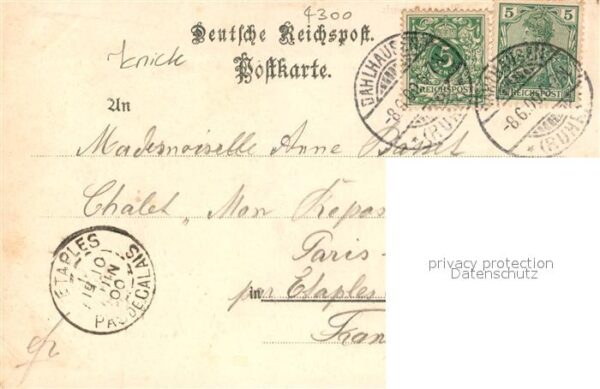 4300
Deutsche Reichspost.
Knick
Postkarte.
5
REICHSPOST
5
REICHSPOST
DAHLHAUSEN
-8.6.0
*(RUHR
-8.6.0
*(RUHR
An
Mademoiselle Anne
Chalet „Mon Repos
Paris-
in par Etaples
Fran
ETAPLES
PAS DE CALAIS
privacy protection
Datenschutz